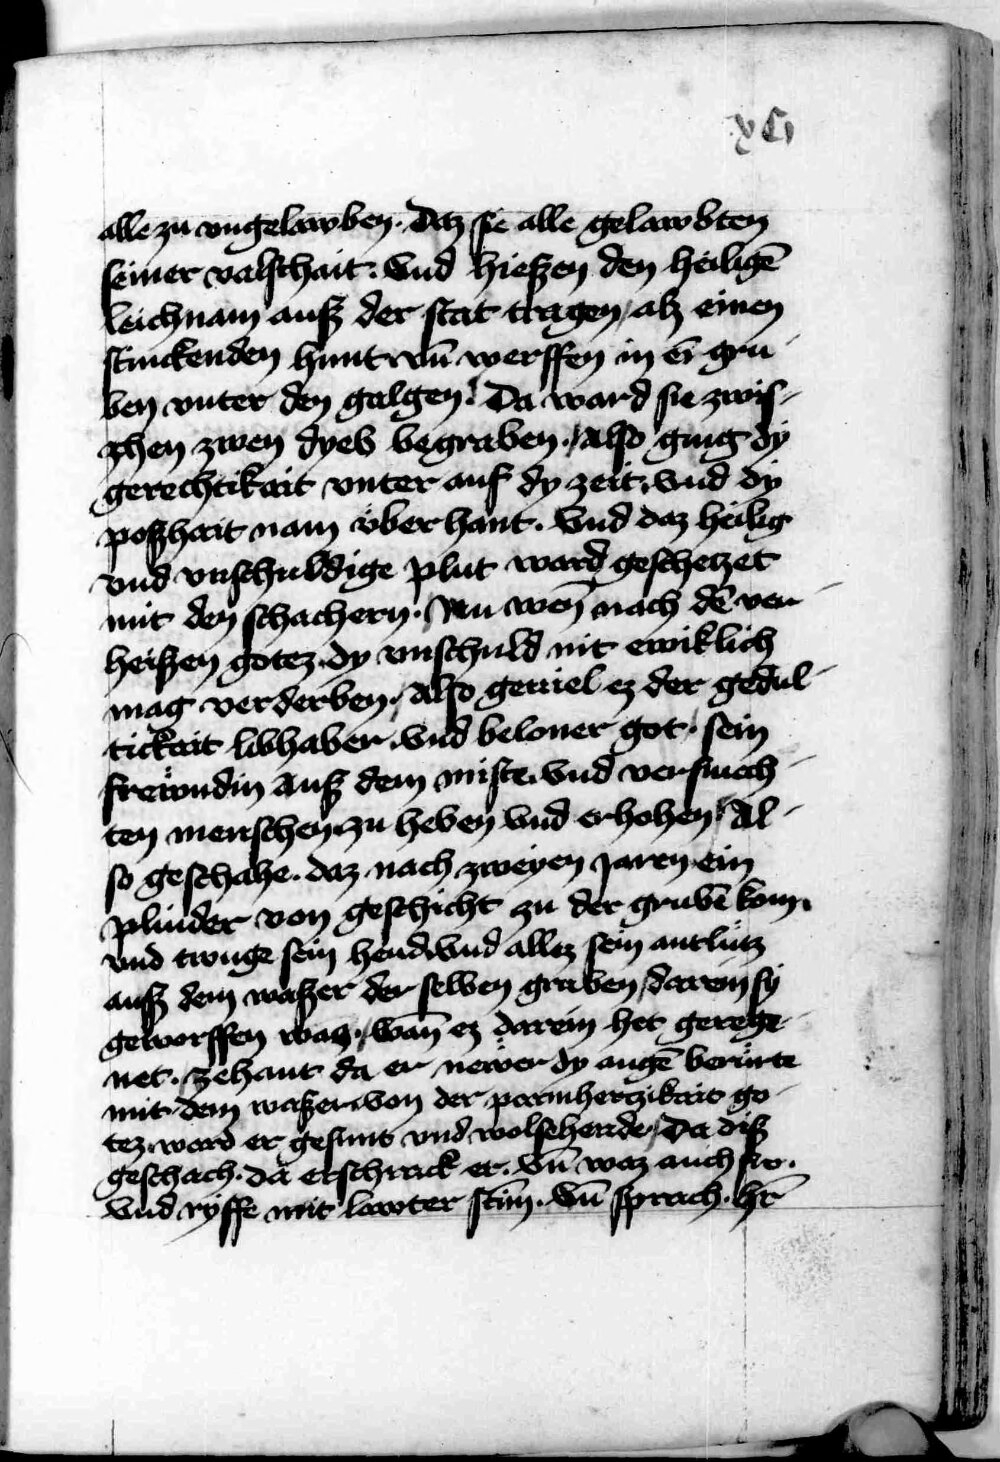 alle zu vngelawben. Daz sie alle gelawbten
seiner valschait. Vnd hießen den heiligē
leichnam auß der stat tragen / alz einen
stinckenden hunt vn̄ werffen in ei͞ gru-
ben vnter den galgen. Da ward sie zwis-
zhen zwen dyeb begraben. / Also ging dy
gerechtikait vnter auf dy zeit. vnd dy
poßhait nam v̈ber hant. Vnd daz heilig
vnd vnschuldige plut ward geschetzet
mit den schachern. / Nu wen̄ nach dē ver-
heißen gotez. dy vnschuld nit ewiklich
mag verderben. / Also geuiel ez der gedul-
tickait libhaber. vnd beloner got. sein
frewndin auß dem miste. vnd versmech-
ten menschen zu heben vnd erhohen / Al-
so geschahe. daz nach zweyen jaren ein
plinder von geschicht zu der grubē kom.
vnd twuge sein hend. vnd allez sein antlütz
auß dem waßer der selben graben / darein sy
geworffen waz. / Wan̄ ez darein het gerege-
net. / Zehant da er newer dy augē berürte
mit dem waßer. von der parmhertzikait go-
tez. ward er gesunt vnd wolsehende / Da diß
geschach. da erschrack er. Vn̄ waz auch fro.
Vnd ryffe mit lawter stim̄. Vn̄ sprach. hr̄